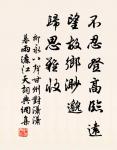 不忍登高臨遠
望故鄉渺邈
歸思難收
柳永八聲甘州對瀟瀟
暮雨灑江天詞